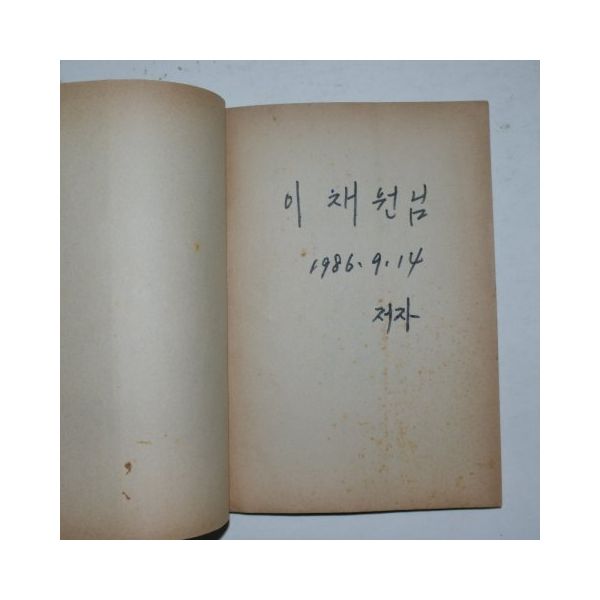 이 채 원 님
1986. 9. 14
저자